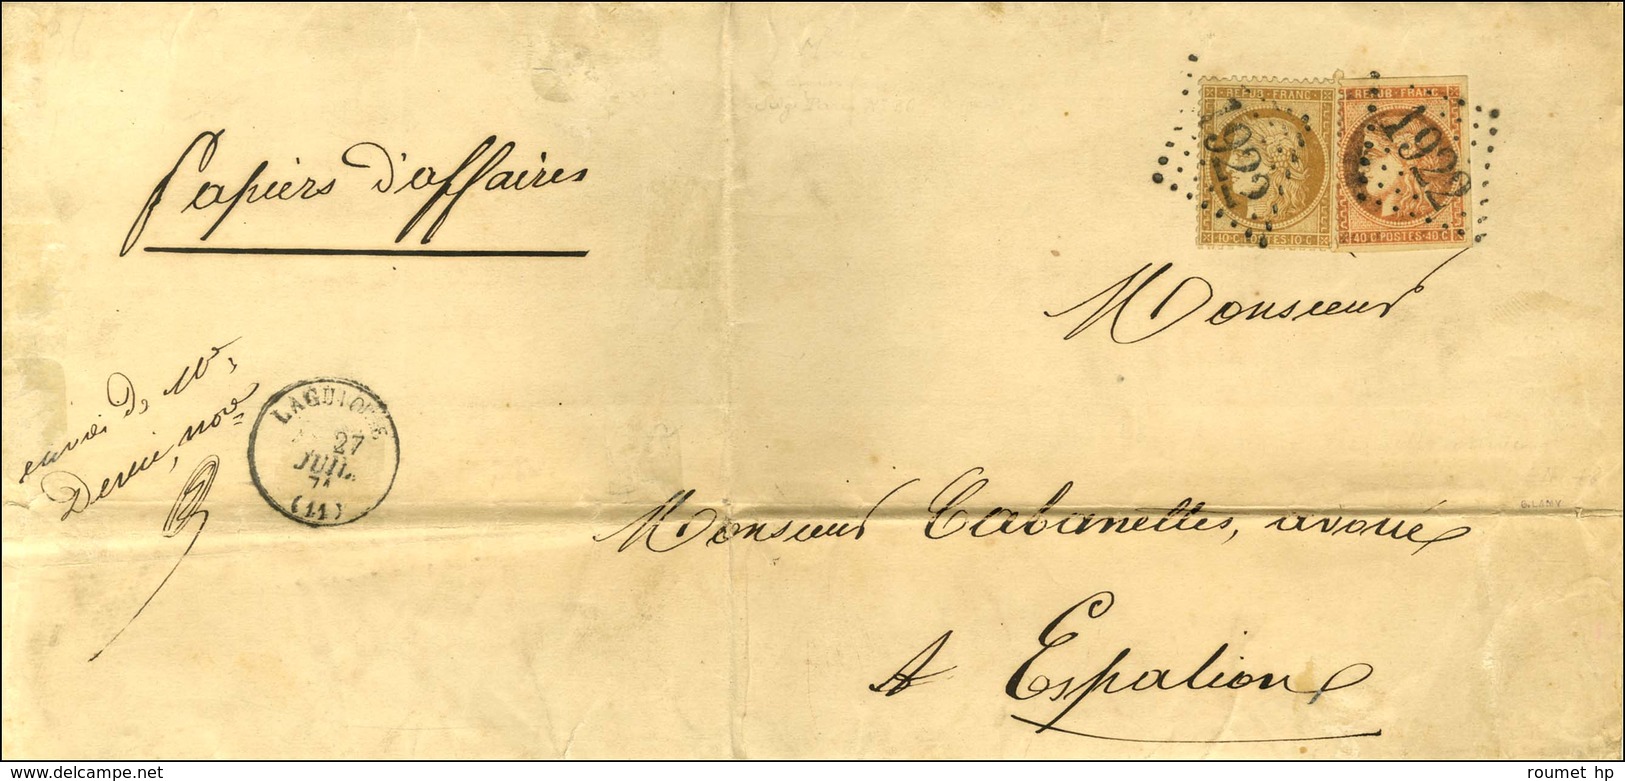 REPUB·FRANC·
REPUB·FRANC·
1922
1922
10·C·POSTES·10·C
40·C·POSTES·40·C
Papiers d'affaires
Monsieur
envoi de Mr
nore
LAGUIOLE
27
JUIL.
71
(11)
Monsieur Cabanettes, avoué
G. LAMY
A Espalion
roumet hp